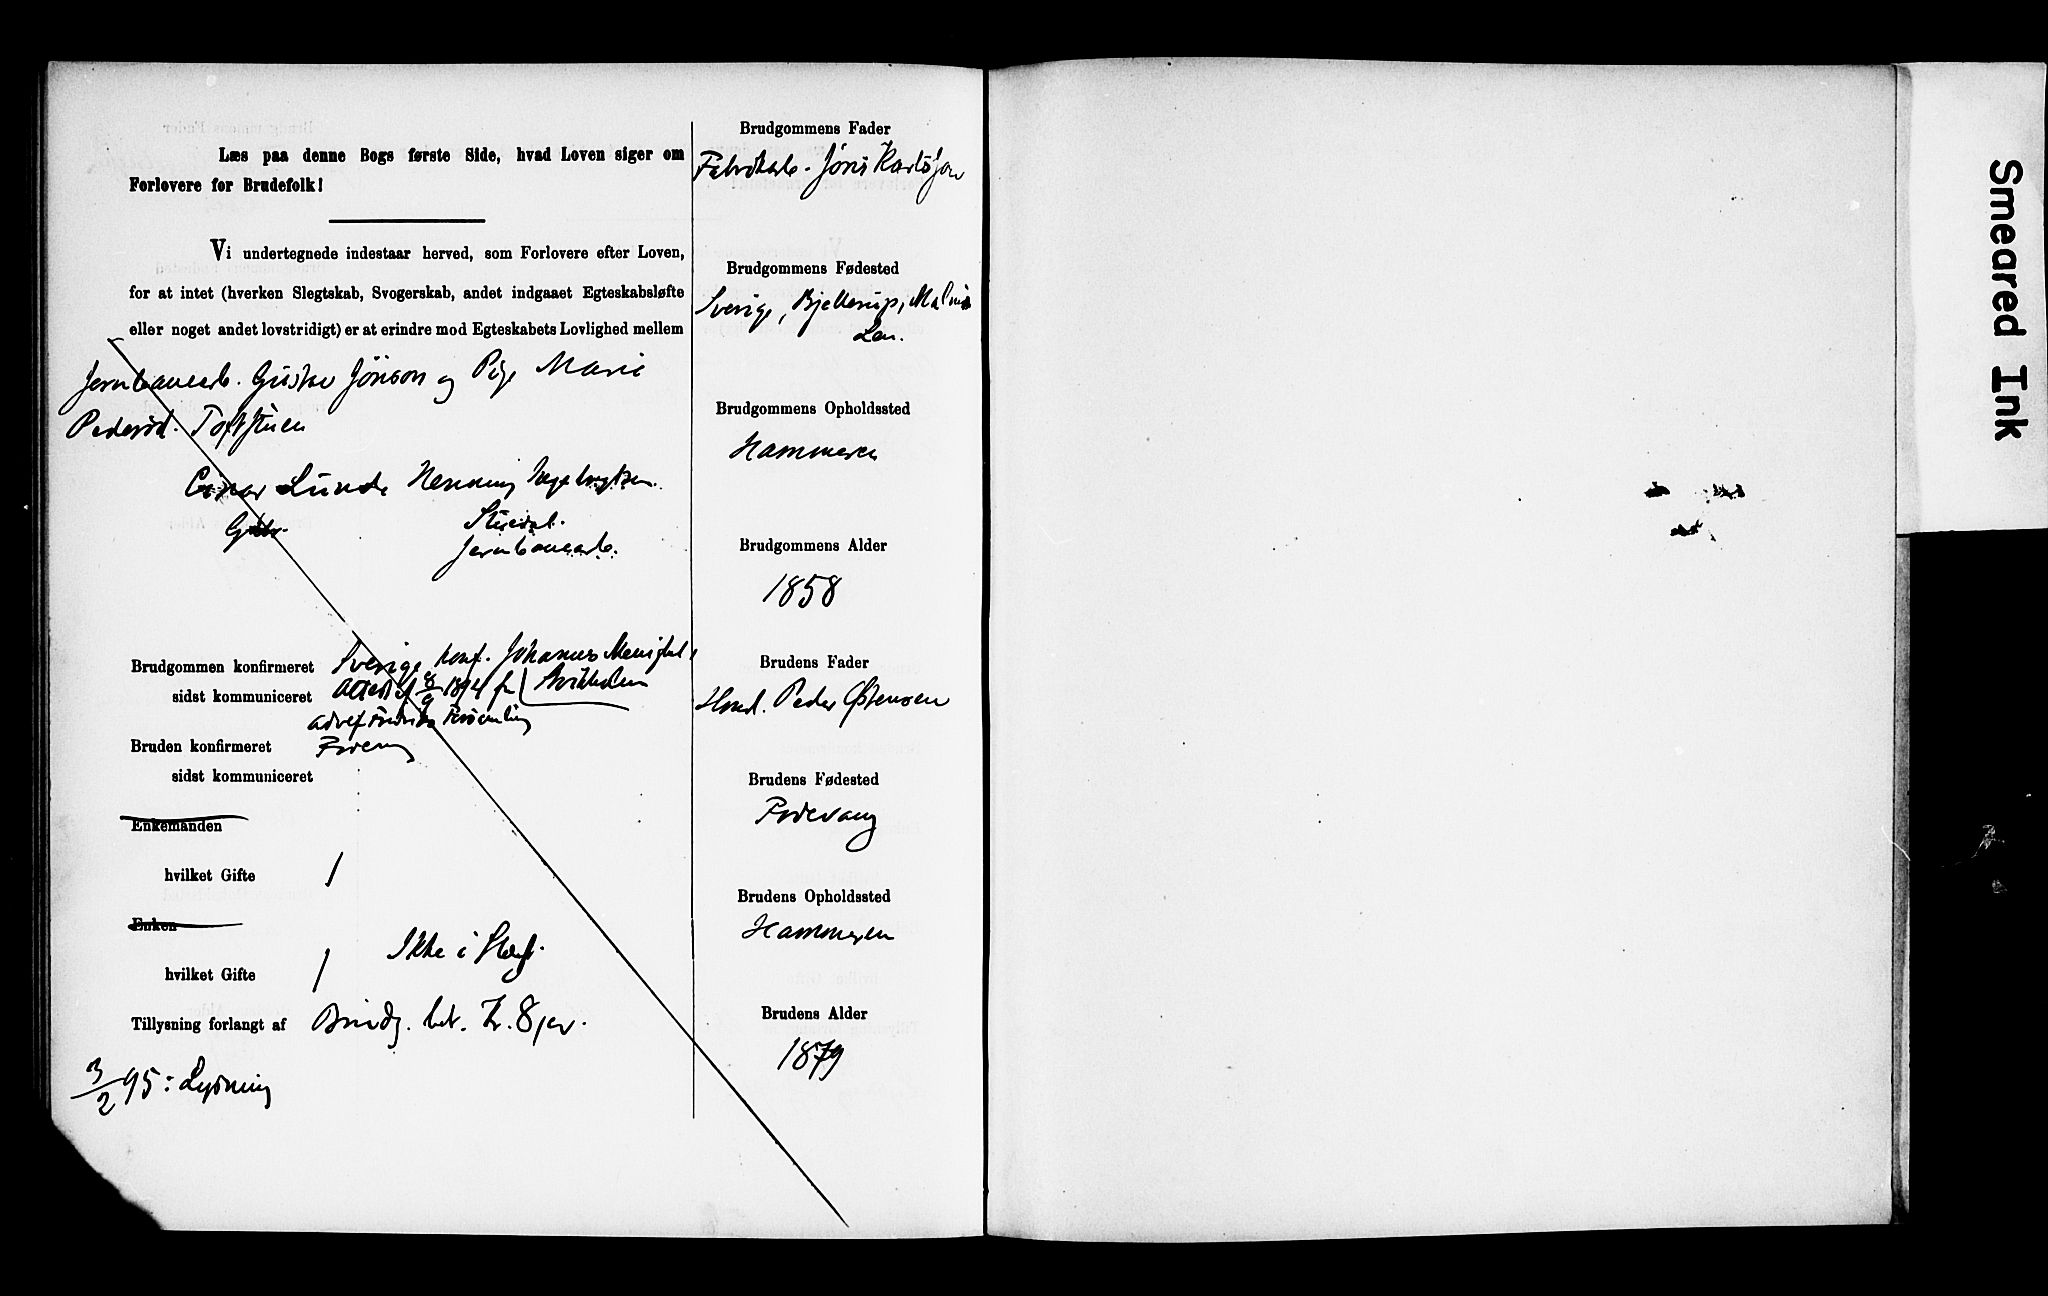 Læs paa denne Bogs første Side, hvad Loven siger om
Forlovere for Brudefolk!
Vi undertegnede indestaar herved, som Forlovere efter Loven,
for at intet (hverken Slegtskab, Svogerskab, andet indgaaet Egteskabsløfte
eller noget andet lovstridigt) er at erindre mod Egteskabets Lovlighed mellem
Jernbanearb. Gustav Jönson og Pige Marie
Pedersd. Toftstuen
Einar Lunde Henning
Gbr.
Jernbanearb.
Brudgommen konfirmeret Sverige konf. Johannes
sidst kommuniceret Attest af 8/9 1894 fr
Bruden konfirmeret
sidst kommuniceret
Enkemanden
hvilket Gifte 1
Enken
hvilket Gifte 1
Ikke i Slægt.
Tillysning forlangt af Brudg. bet. Kr. 8
3/2 95: Lysning
Brudgommens Fader
Fabrikarb. Jöns Karlsson
Brudgommens Fødested
Sverige, Bjellerup, Malmø
Len.
Brudgommens Opholdssted
Hammeren
Brudgommens Alder
1858
Brudens Fader
Hmd. Peder Østensen
Brudens Fødested
Fodevang
Brudens Opholdssted
Hammeren
Brudens Alder
1879
Smeared Ink